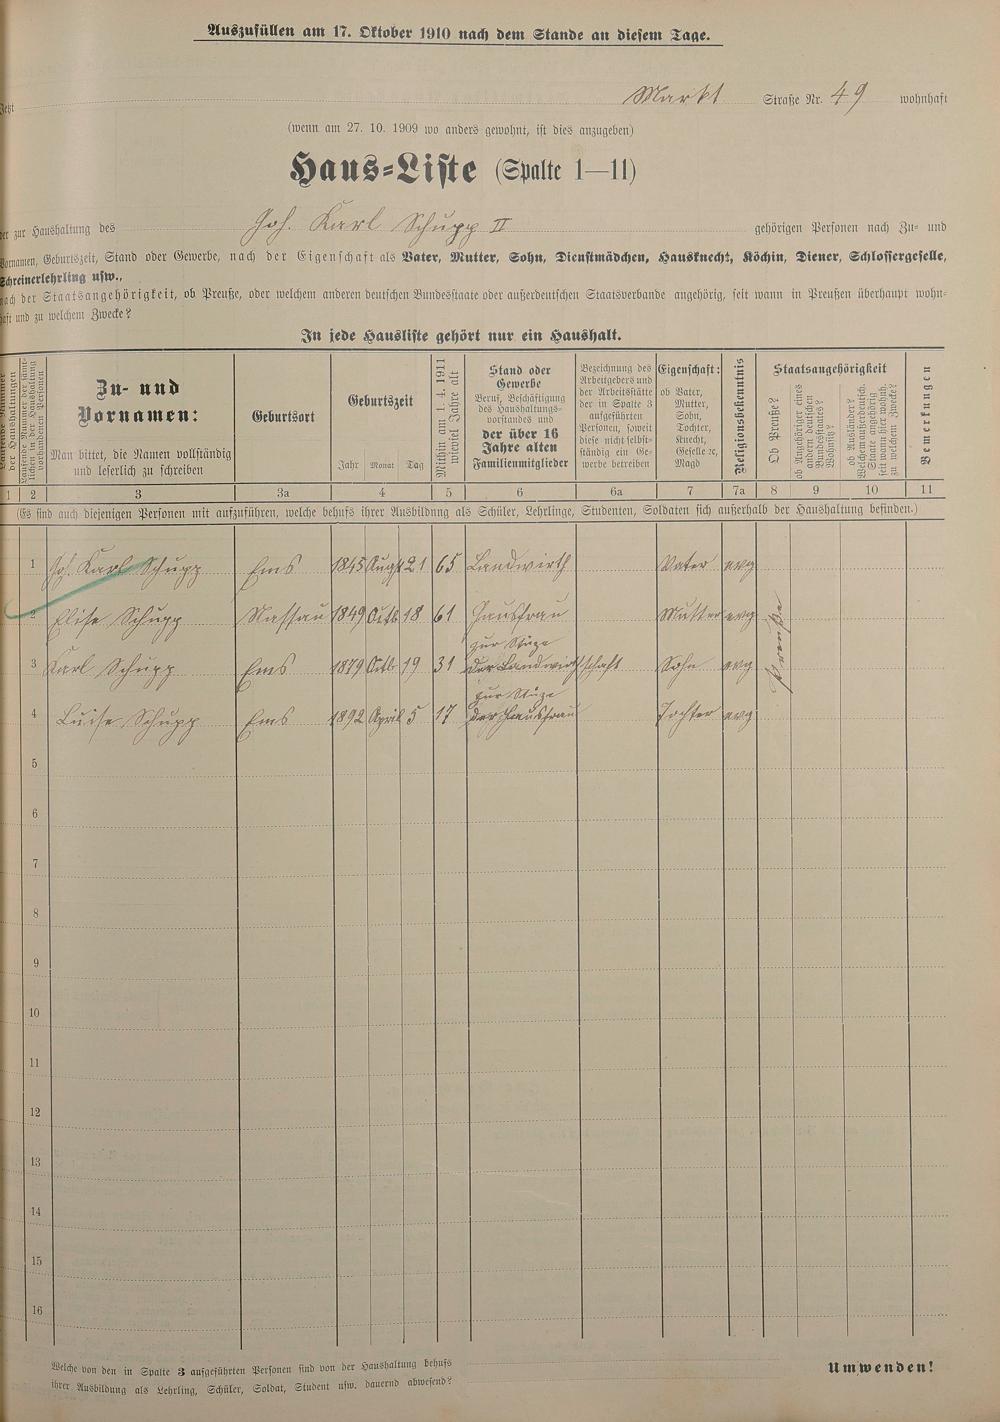 Auszufüllen am 17. Oktober 1910 nach dem Stande an diesem Tage.
Jetzt Markt Straße Nr. 49 wohnhaft
(wenn am 27. 10. 1909 wo anders gewohnt, ist dies anzugeben)
Haus=Liste (Spalte 1—11)
der zur Haushaltung des Joh. Karl Schupp II gehörigen Personen nach Zu- und
Vornamen, Geburtszeit, Stand oder Gewerbe, nach der Eigenschaft als Vater, Mutter, Sohn, Dienstmädchen, Hausknecht, Köchin, Diener, Schlossergeselle,
Schreinerlehrling usw.,
nach der Staatsangehörigkeit, ob Preuße, oder welchem anderen deutschen Bundesstaate oder außerdeutschen Staatsverbande angehörig, seit wann in Preußen überhaupt wohn-
haft und zu welchem Zwecke?
In jede Hausliste gehört nur ein Haushalt.
Laufende Nummer der Haushaltungen
Laufende Nummer der sämt-
lichen in der Haushaltung
vorhandenen Personen
Zu- und
Vornamen:
Man bittet, die Namen vollständig
und leserlich zu schreiben
Geburtsort
Geburtszeit
Jahr Monat Tag
Mithin am 1. 4. 1911
wieviel Jahre alt
Stand oder
Gewerbe
Beruf, Beschäftigung
des Haushaltungs-
vorstandes und
der über 16
Jahre alten
Familienmitglieder
Bezeichnung des
Arbeitgebers und
der Arbeitsstätte
der in Spalte 3
aufgeführten
Personen, soweit
diese nicht selbst-
ständig ein Ge-
werbe betreiben
Eigenschaft:
ob Vater,
Mutter,
Sohn,
Tochter,
Knecht,
Geselle ec,
Magd
Religionsbekenntnis
Staatsangehörigkeit
Ob Preuße?
ob Angehöriger eines
andern deutschen
Bundesstaates?
Wohnsitz?
ob Ausländer?
Welchem außerdeutsch.
Staate angehörig
seit wann hier wohnh.
zu welchem Zwecke?
Bemerkungen
1 2 3 3a 4 5 6 6a 7 7a 8 9 10 11
(Es sind auch diejenigen Personen mit aufzuführen, welche behufs ihrer Ausbildung als Schüler, Lehrlinge, Studenten, Soldaten sich außerhalb der Haushaltung befinden.)
1 Joh. Karl Schupp Ems 1845 Augst 21 65 Landwirth Vater evg
2 Elise Schupp Nassau 1849 Octb 18 61 Hausfrau Mutter evg Preuße
zur Stüze
3 Karl Schupp Ems 1879 Octb 19 31 der Landwirthschaft Sohn evg
zur Stüze
4 Luise Schupp Ems 1892 April 5 17 der Hausfrau Tochter evg
5
6
7
8
9
10
11
12
13
14
15
16
Welche von den in Spalte 3 aufgeführten Personen sind von der Haushaltung behufs
ihrer Ausbildung als Lehrling, Schüler, Soldat, Student usw. dauernd abwesend?
Umwenden!